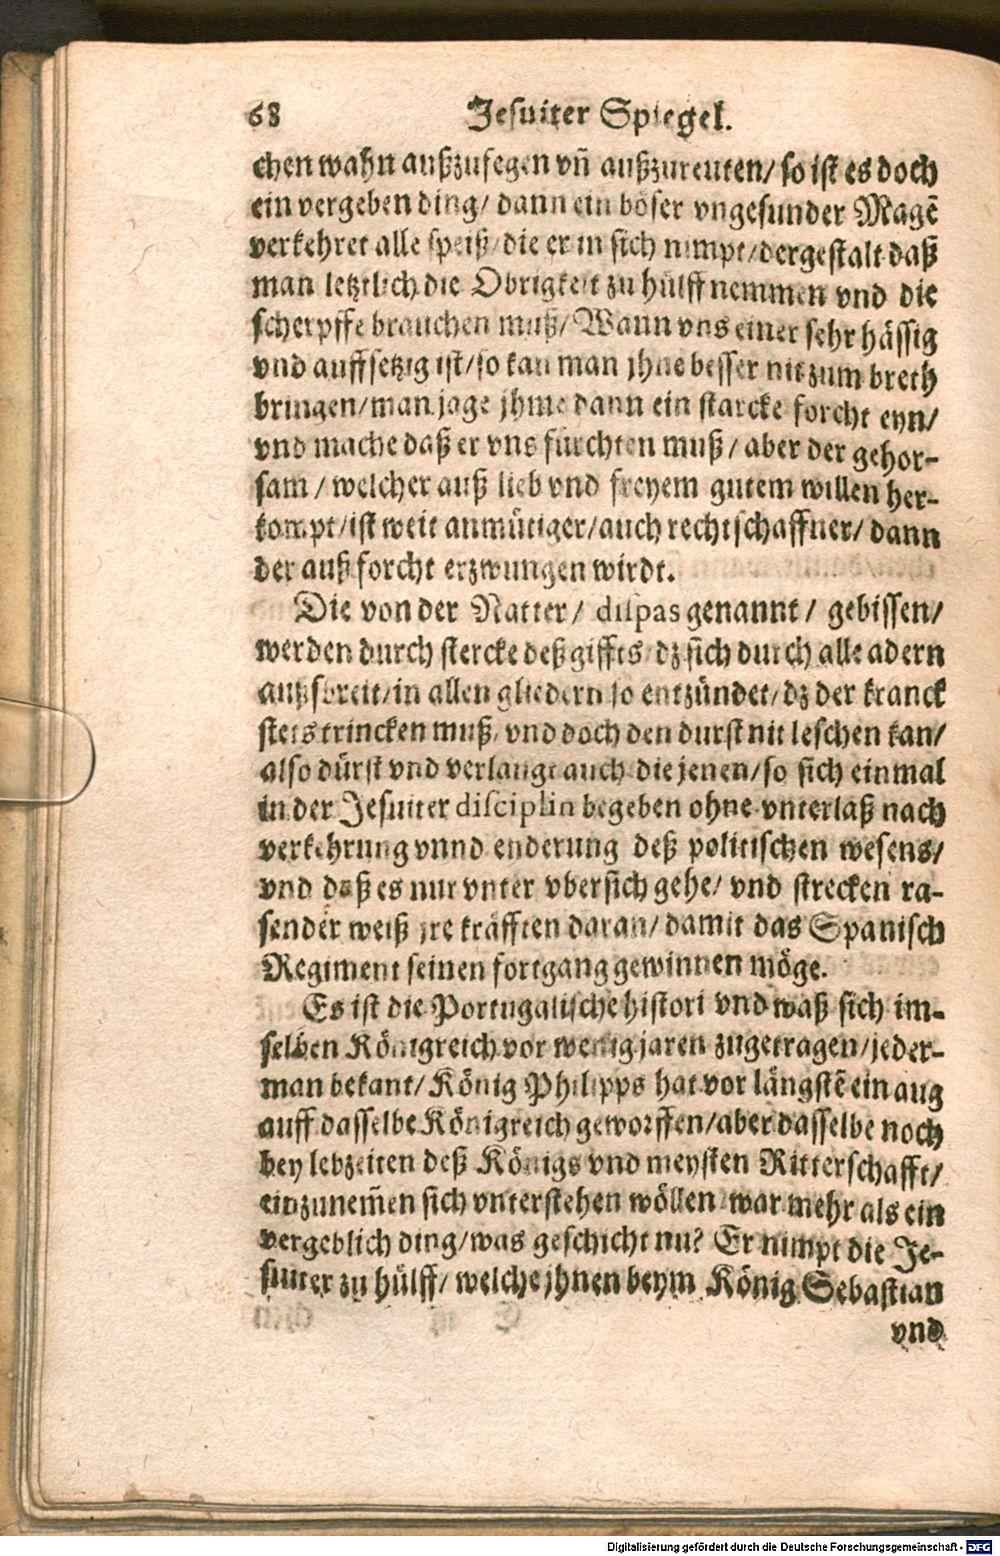 68 Jesuiter Spiegel.
chen wahn außzufegen vñ außzureuten/ so ist es doch
ein vergeben ding/ dann ein böser vngesunder Magē
verkehret alle speiß/ die er in sich nimpt/ dergestalt daß
man letztlich die Obrigkeit zu hülff nemmen vnd die
scherpffe brauchen muß/ Wann vns einer sehr hässig
vnd auffsetzig ist/ so kan man jhne besser nit zum breth
bringen/ man jage jhme dann ein starcke forcht eyn/
vnd mache daß er vns fürchten muß/ aber der gehor-
sam/ welcher auß lieb vnd freyem gutem willen her-
kompt/ ist weit anmütiger/ auch rechtschaffner/ dann
der auß forcht erzwungen wirdt.
Die von der Natter/ dispas genannt/ gebissen/
werden durch stercke deß giffts/ dz sich durch alle adern
außspreit/ in allen gliedern so entzündet/ dz der kranck
stets trincken muß/ vnd doch den durst nit leschen kan/
also dürst vnd verlangt auch die jenen/ so sich einmal
in der Jesuiter disciplin begeben ohne vnterlaß nach
verkehrung vnnd enderung deß politischen wesens/
vnd daß es nur vnter vbersich gehe/ vnd strecken ra-
sender weiß jre kräfften daran/ damit das Spanisch
Regiment seinen fortgang gewinnen möge.
Es ist die Portugalische histori vnd waß sich im-
selben Königreich vor wenig jaren zugetragen/ jeder-
man bekant/ König Philipps hat vor längstē ein aug
auff dasselbe Königreich geworffen/ aber dasselbe noch
bey lebzeiten deß Königs vnd meysten Ritterschafft/
einzunem̄en sich vnterstehen wöllen war mehr als ein
vergeblich ding/ was geschicht nu? Er nimpt die Je-
suiter zu hülff/ welche jhnen beym König Sebastian
vnd
Digitalisierung gefördert durch die Deutsche Forschungsgemeinschaft - DFG